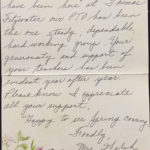 have been here at Thomas
our PTO has been
the one steady, dependable,
hard working group. Your
generosity and support of
your teachers has been
evident year after year.
Please know I appreciate
all your support.
Happy to see Spring coming
Fondly,
Mrs.